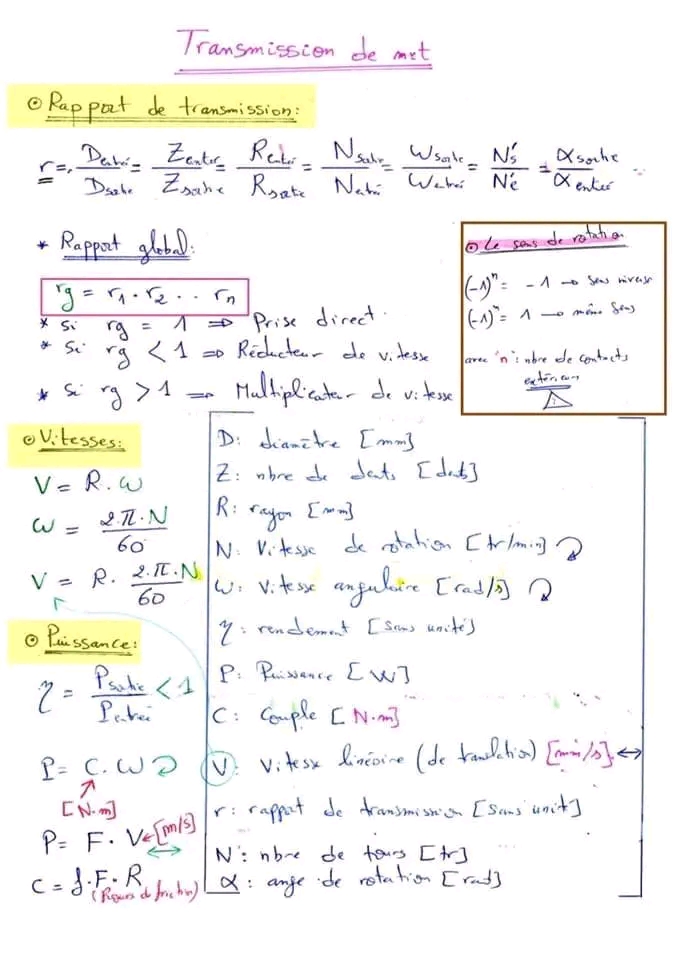 Transmission de mvt
⊙ Rapport de transmission:
r = Dentrée/Dsortie = Zentrée/Zsortie = Rentrée/Rsortie = Nsortie/Nentrée = Wsortie/Wentrée = N's/N'e = αsortie/αentrée
* Rapport global:
rg = r1 . r2 . . . rn
* Si rg = 1 ⇒ Prise direct.
* Si rg < 1 ⇒ Réducteur de vitesse
* Si rg > 1 ⇒ Multiplicateur de vitesse
⊙ Le sens de rotation
(-1)ⁿ = -1 → sens inverse
(-1)ⁿ = 1 → même sens
avec "n": nbre de contacts
extérieurs
⊙ Vitesses:
V = R . ω
ω = 2.π.N/60
V = R . 2.π.N/60
⊙ Puissance:
η = Psortie/Pentrée < 1
P = C . ω
[N.m]
P = F . V ← [m/s]
C = f . F . R
D: diamètre [mm]
Z: nbre de dents [dents]
R: rayon [mm]
N: Vitesse de rotation [tr/min]
ω: Vitesse angulaire [rad/s]
η: rendement [sans unité]
P: Puissance [W]
C: Couple [N.m]
V: Vitesse linéaire (de translation) [mm/s] ↔
r: rapport de transmission [sans unité]
N': nbre de tours [tr]
α: ange de rotation [rad]